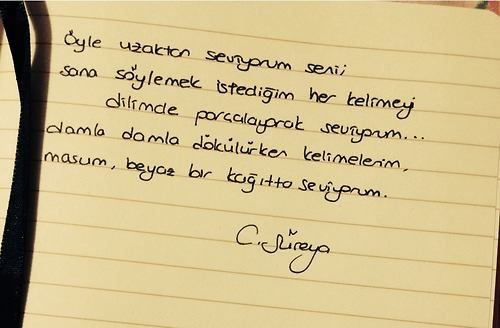 Öyle uzaktan seviyorum seni;
sana söylemek istediğim her kelimeyi
dilimde parçalayarak seviyorum...
damla damla dökülürken kelimelerim,
masum, beyaz bir kağıtta seviyorum.
C. Süreya